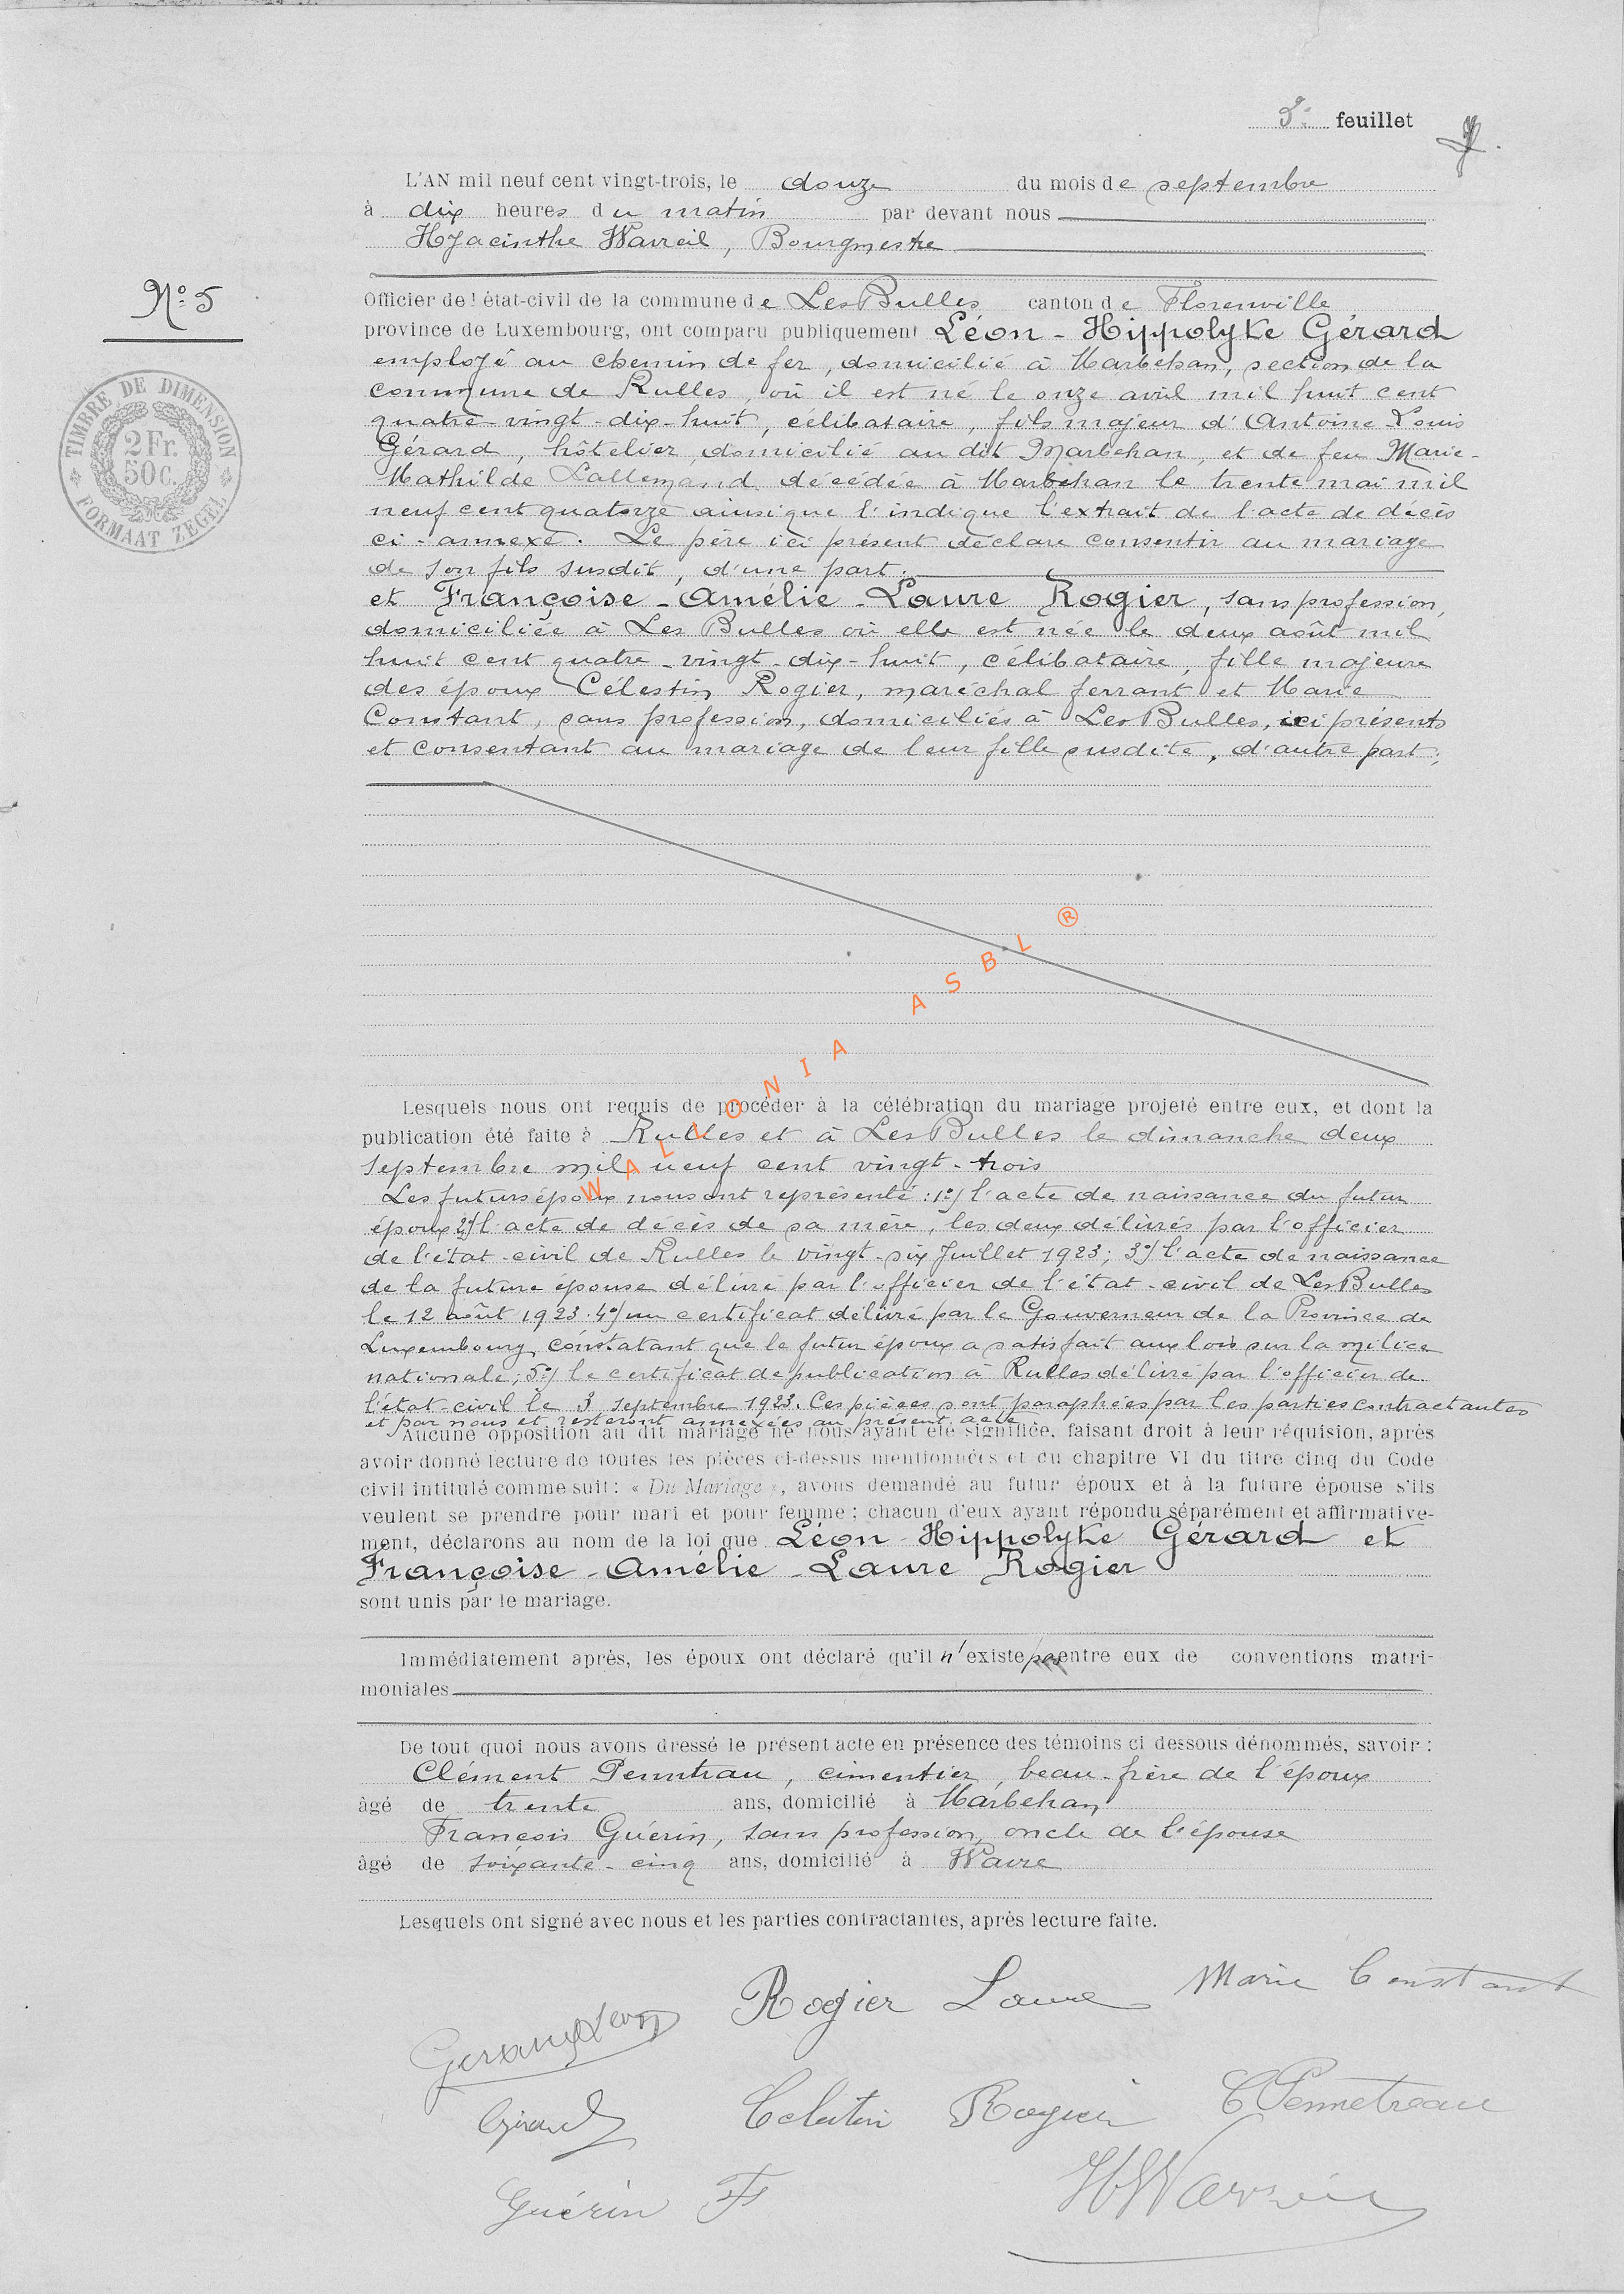 5e feuillet
L'AN mil neuf cent vingt-trois, le douze du mois de septembre
à dix heures du matin par devant nous
Hyacinthe Warzeil, Bourgmestre
N° 5
Officier de l'état-civil de la commune de Les Bulles canton de Florenville
province de Luxembourg, ont comparu publiquement Léon-Hippolyte Gérard
employé au chemin de fer, domicilié à Marbehan, section de la
commune de Rulles, où il est né le onze avril mil huit cent
quatre-vingt-dix-huit, célibataire, fils majeur d'Antoine Louis
Gérard, hôtelier, domicilié au dit Marbehan, et de feu Marie-
Mathilde Lallemand décédée à Marbehan le trente mai mil
neuf cent quatorze ainsi que l'indique l'extrait de l'acte de décès
ci-annexé. Le père ici présent déclare consentir au mariage
de son fils susdit, d'une part;
et Françoise-Amélie-Laure Rogier, sans profession,
domiciliée à Les Bulles où elle est née le deux août mil
huit cent quatre-vingt-dix-huit, célibataire, fille majeure
des époux Célestin Rogier, maréchal ferrant et Marie
Constant, sans profession, domiciliés à Les Bulles, ici présents
et consentant au mariage de leur fille susdite, d'autre part;
TIMBRE DE DIMENSION
2 Fr.
50 c.
FORMAAT ZEGEL
WALLONIA ASBL ®
Lesquels nous ont requis de procéder à la célébration du mariage projeté entre eux, et dont la
publication été faite à Rulles et à Les Bulles le dimanche deux
septembre mil neuf cent vingt-trois
Les futurs époux nous ont représenté : 1°/ l'acte de naissance du futur
époux 2°/ l'acte de décès de sa mère, les deux délivrés par l'officier
de l'état-civil de Rulles le vingt-six Juillet 1923; 3°/ l'acte de naissance
de la future épouse délivré par l'officier de l'état-civil de Les Bulles
le 12 août 1923. 4°/ un certificat délivré par le Gouverneur de la Province de
Luxembourg, constatant que le futur époux a satisfait aux lois sur la milice
nationale; 5°/ le certificat de publication à Rulles délivré par l'officier de
l'état-civil le 3 septembre 1923. Ces pièces sont paraphées par les parties contractantes
et par nous et resteront annexées au présent acte
Aucune opposition au dit mariage ne nous ayant été signifiée, faisant droit à leur réquision, après
avoir donné lecture de toutes les pièces ci-dessus mentionnées et du chapitre VI du titre cinq du Code
civil intitulé comme suit : « Du Mariage », avons demandé au futur époux et à la future épouse s'ils
veulent se prendre pour mari et pour femme ; chacun d'eux ayant répondu séparément et affirmative-
ment, déclarons au nom de la loi que Léon-Hippolyte Gérard et
Françoise-Amélie-Laure Rogier
sont unis par le mariage.
Immédiatement après, les époux ont déclaré qu'il n'existe pas entre eux de conventions matri-
moniales
De tout quoi nous avons dressé le présent acte en présence des témoins ci dessous dénommés, savoir :
Clément Penntrau, cimentier, beau-frère de l'époux
âgé de trente ans, domicilié à Marbehan
François Guérin, sans profession, oncle de l'épouse
âgé de soixante-cinq ans, domicilié à Wavre
Lesquels ont signé avec nous et les parties contractantes, après lecture faite.
Rogier Laure Marie Constant
Gerard Léon
Gérard Celestin Rogier C Pennetreau
Guérin F